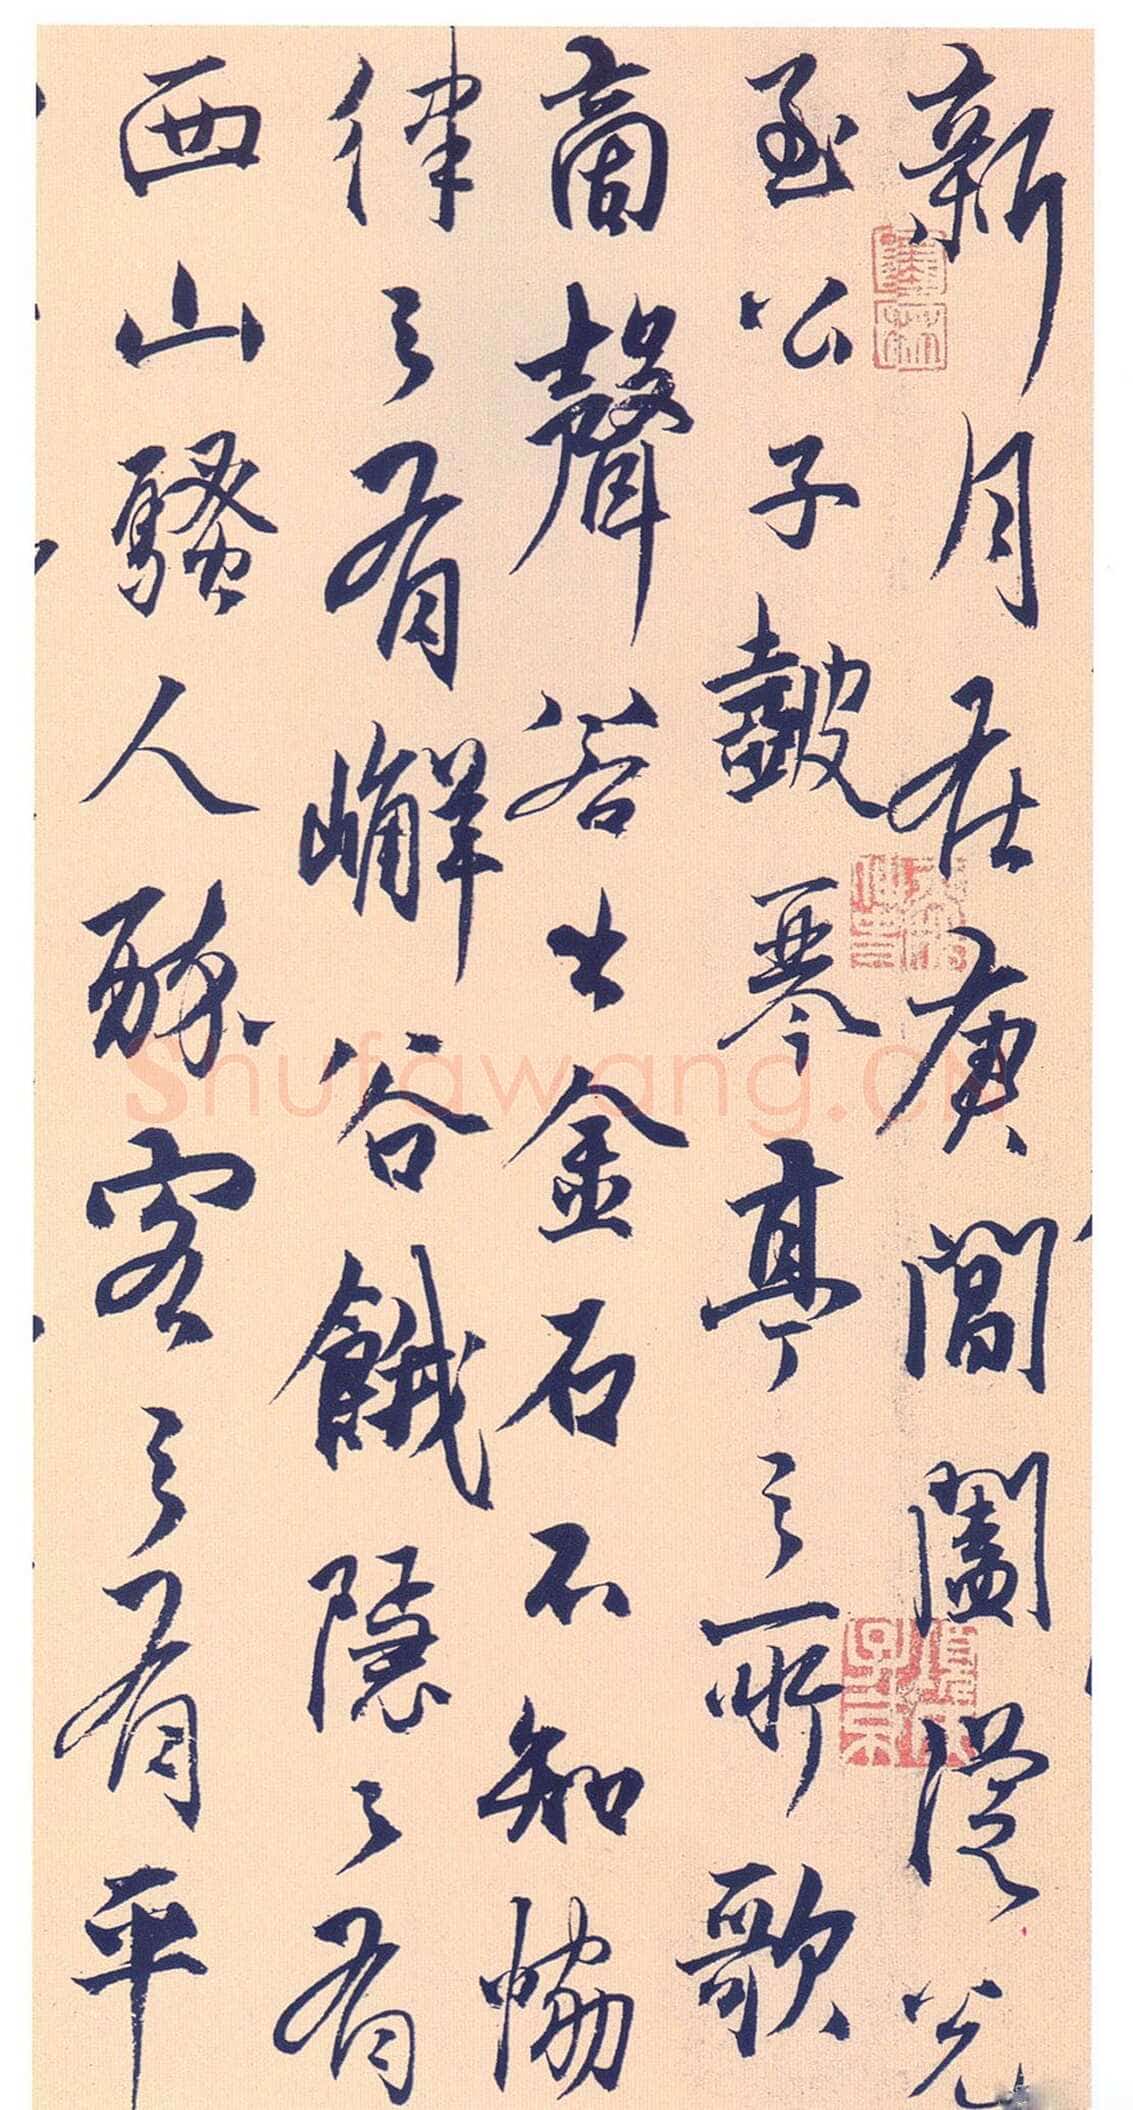 新月在庚閶闔光
至公子鼓琴亭之所歌
商聲若出金石不知協
律之有嶰谷餓隱之有
西山騷人醉客之有平
Shufawang.CN